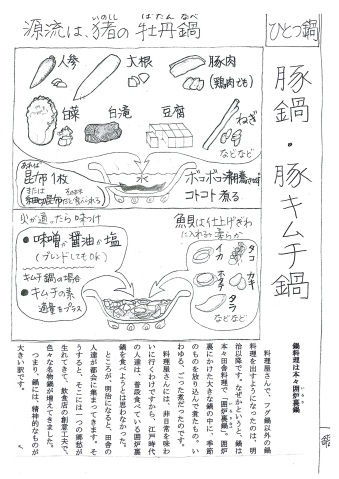 ひとつ鍋
豚鍋・豚キムチ鍋
源流は、猪の牡丹鍋
いのしし
ぼたんなべ
人参
大根
豚肉
(鶏肉でも)
白菜
白滝
豆腐
ねぎ
などなど
あれば
昆布1枚
(または
細切り昆布
水
ボコボコ沸騰させず
コトコト煮る
火が通ったら味つけ
・味噌か醤油か塩
(ブレンドしてもOK)
キムチ鍋の場合
・キムチの素
適量をプラス
魚貝は仕上げぎわ
に入れると柔らか
タコ
イカ
カキ
ホタテ
タラ
などなど
鍋料理は本々囲炉裏鍋
料理屋さんで、フグ鍋以外の鍋
料理を出すようになったのは、明
治以降です。なぜかというと、鍋は
本々田舎料理で、「囲炉裏鍋」。囲炉
裏にかけた大きな鍋の中に、季節
のものを放り込んで煮たもの。い
わゆる、ごった煮だったのです。
料理屋さんには、非日常を味わ
いに行くわけですから、江戸時代
の人達は、普段食べている囲炉裏
鍋を食べようとは思わなかった。
ところが、明治になると、田舎の
人達が都会に集まってきます。そ
うすると、そこには一つの郷愁が
生れてきて、飲食店の創意工夫で、
色々な名物鍋が増えてきました。
つまり、鍋には、精神的なものが
大きい訳です。